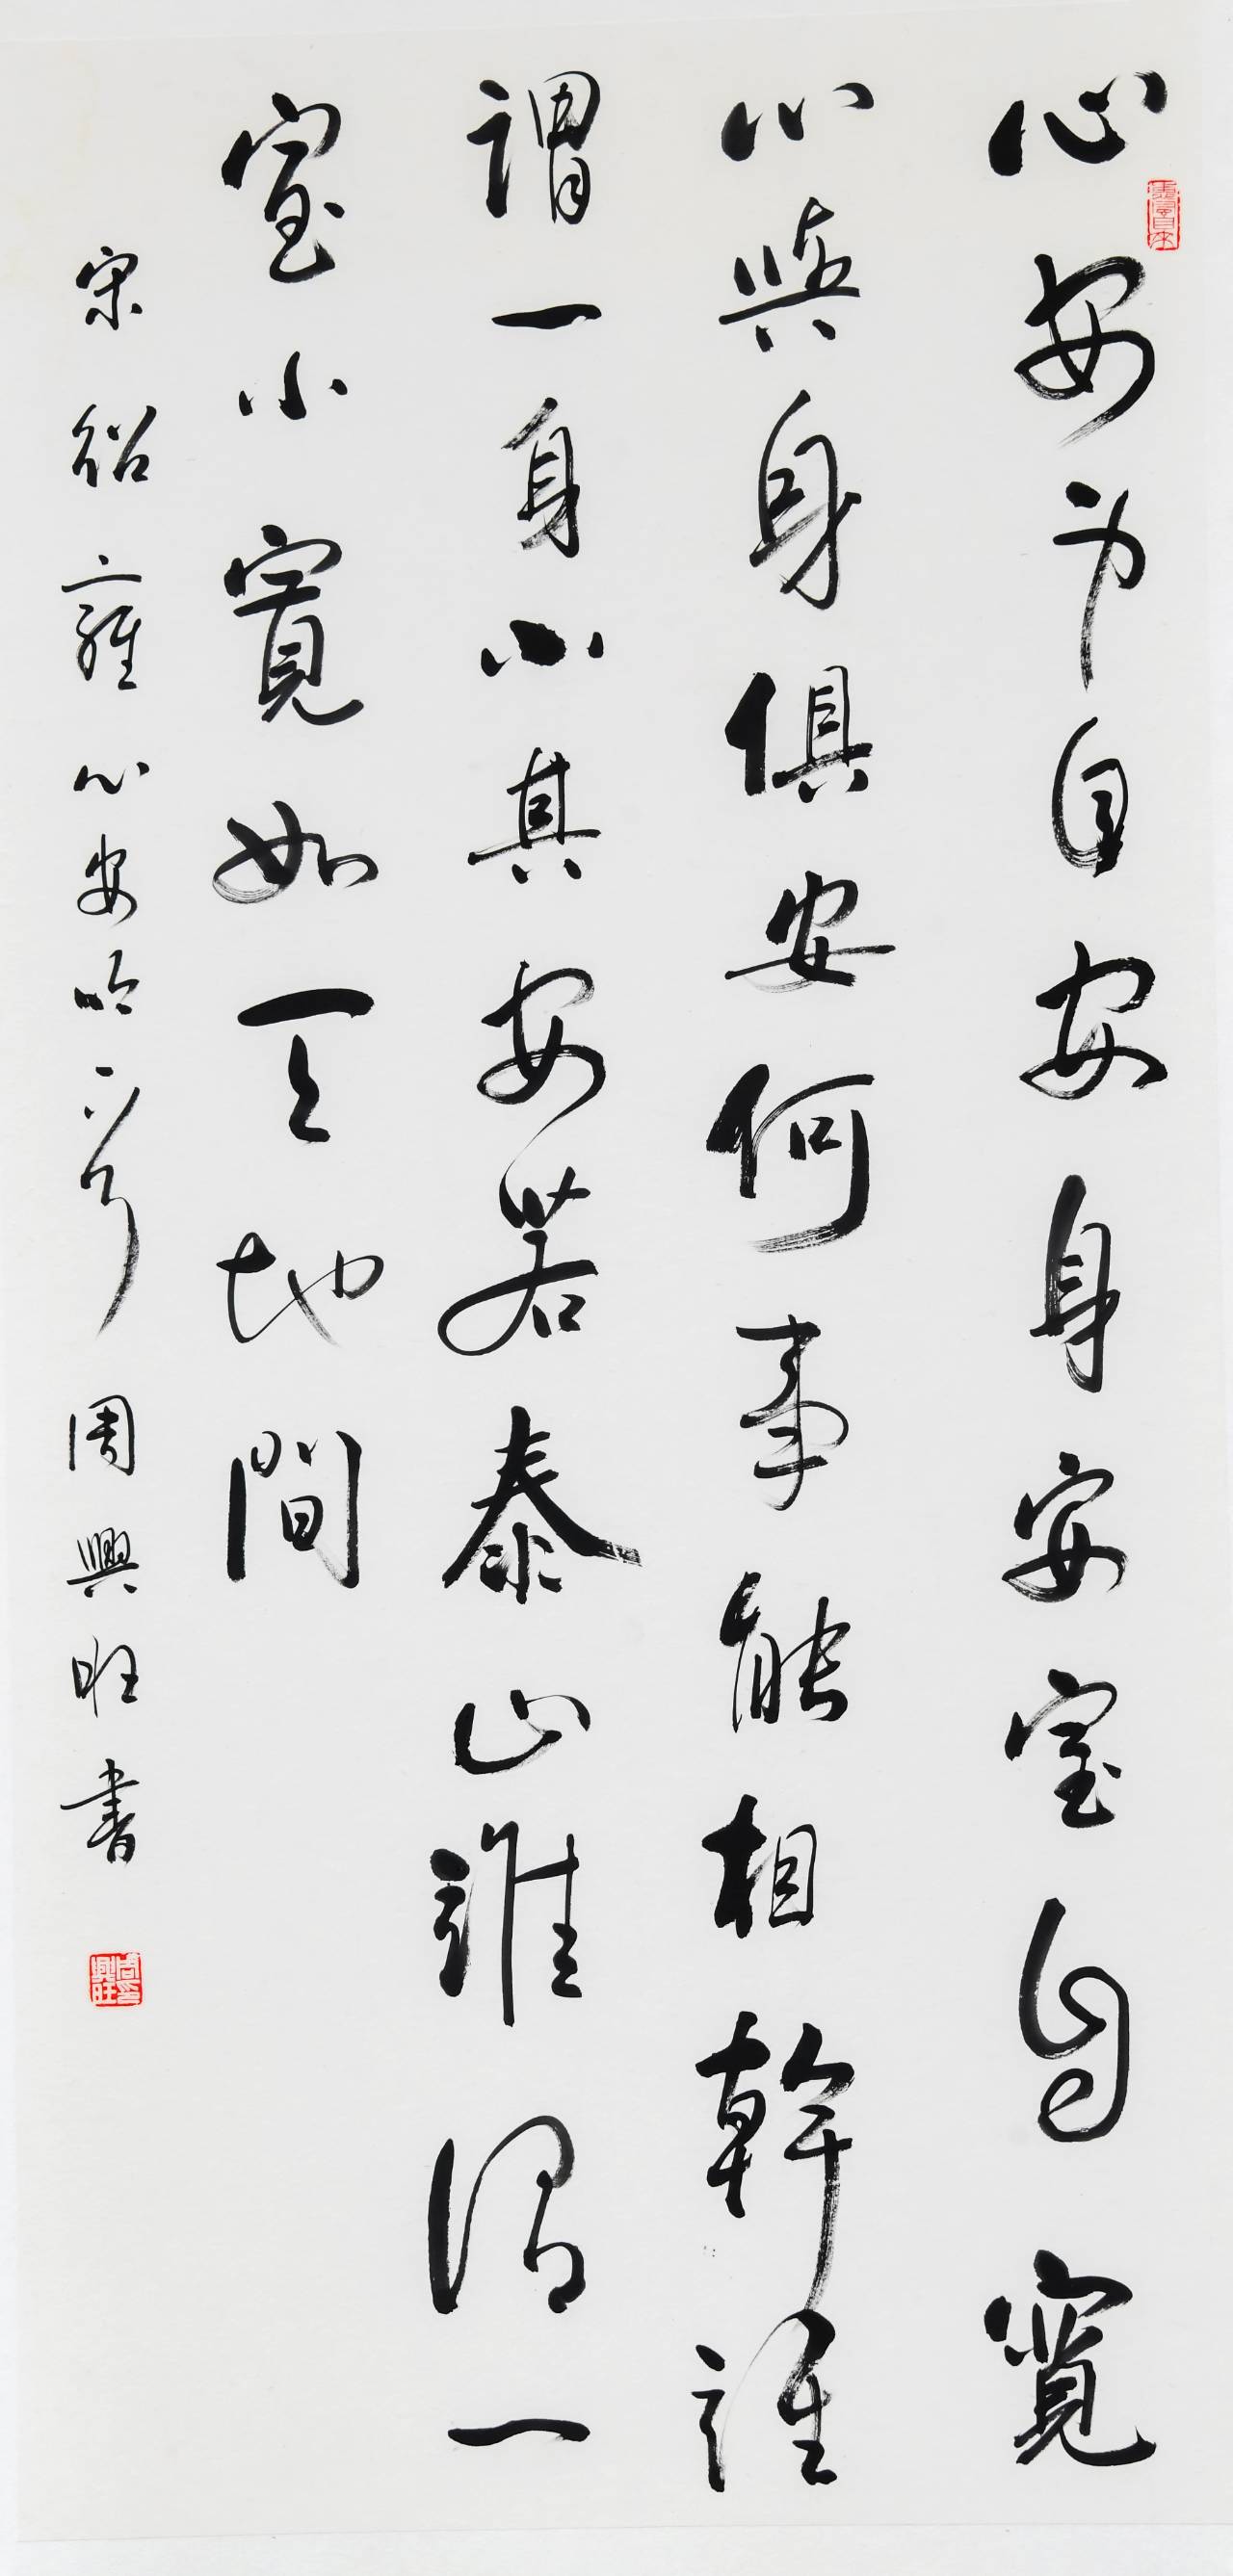 心安身自安身安室自寬
心與身俱安何事能相幹誰
謂一身小其安若泰山誰謂一
室小寬如天地間
宋邵雍心安吟一首 周興旺書
周興旺印